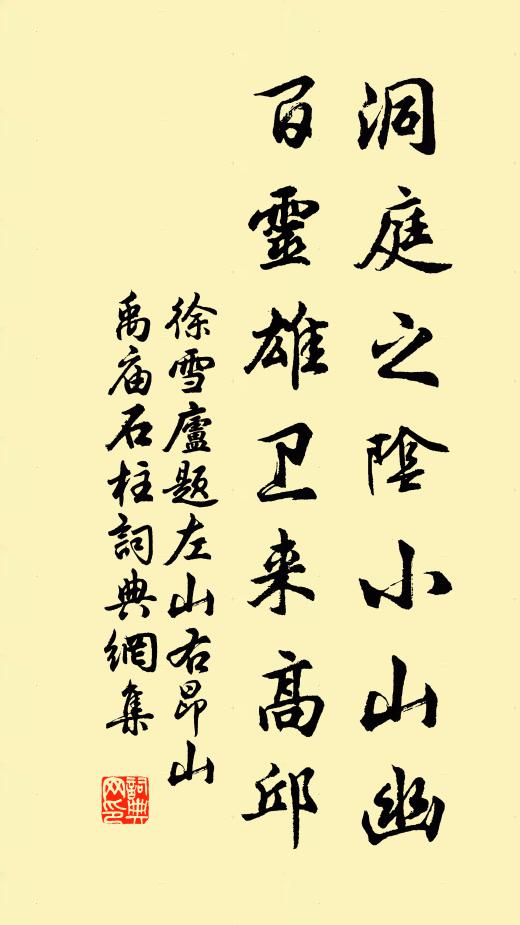 洞庭之陰小山幽
百靈雄卫来高邱
徐雪廬題左山右昂山
禹庙石柱詞典網集
詞典网印